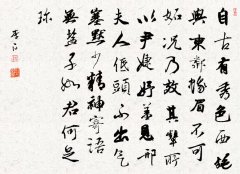 自古有秀色西施
與東鄰蛾眉不可
妬况乃效其顰所
以尹婕妤羞見邢
夫人低頭不出氣
塞默少精神寄語
無鹽子如君何足
珍